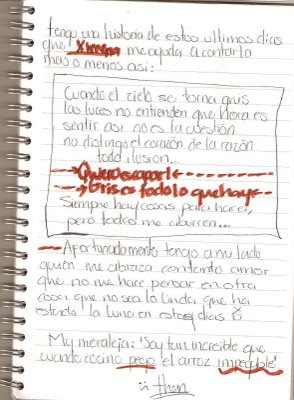 tengo una historia de estos ultimos dias
que Ximena me ayuda a contarla
mas o menos asi:
Cuando el cielo se torna gris
las luces no entienden que
sentir asi no es la cuestión
no distingo el corazón de la razón
todo ilusion...
Quiero escapar
Gris es todo lo que hay
Siempre hay cosas para hacer,
pero todas me aburren...
Afortunadamente tengo a mi lado
quien me abraza contando amor
que no me hace pensar en otra
cosa que no sea lo linda que ha
estado la luna en estos dias
My moraleja: "Soy tan increible que
cuando cocino pego el arroz impecable"